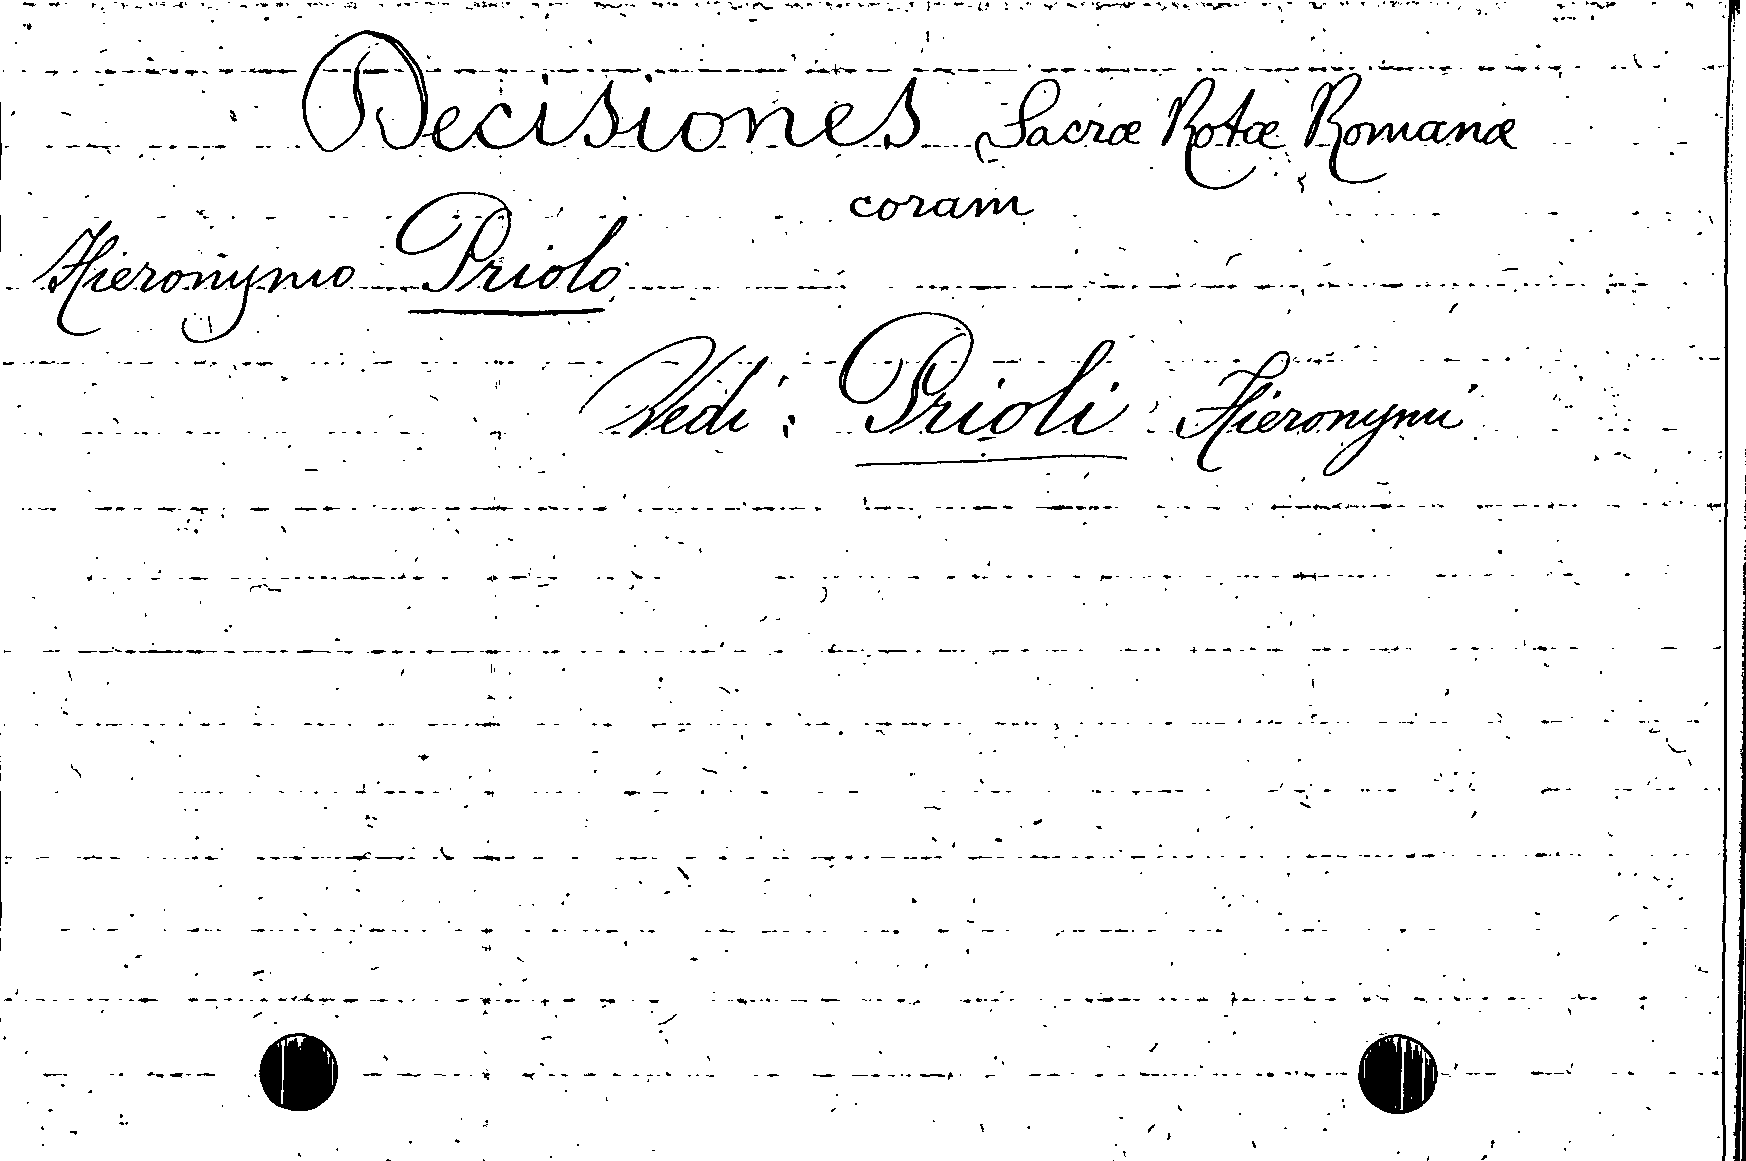 Decisiones Sacræ Rotæ Romanæ
coram
Hieronymo Priolo
Vedi: Prioli Hieronymi